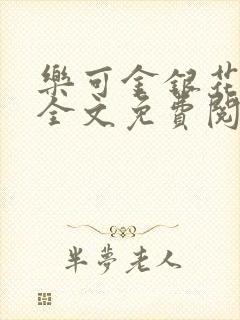 樂可金銀花
全文免費閱
半夢老人